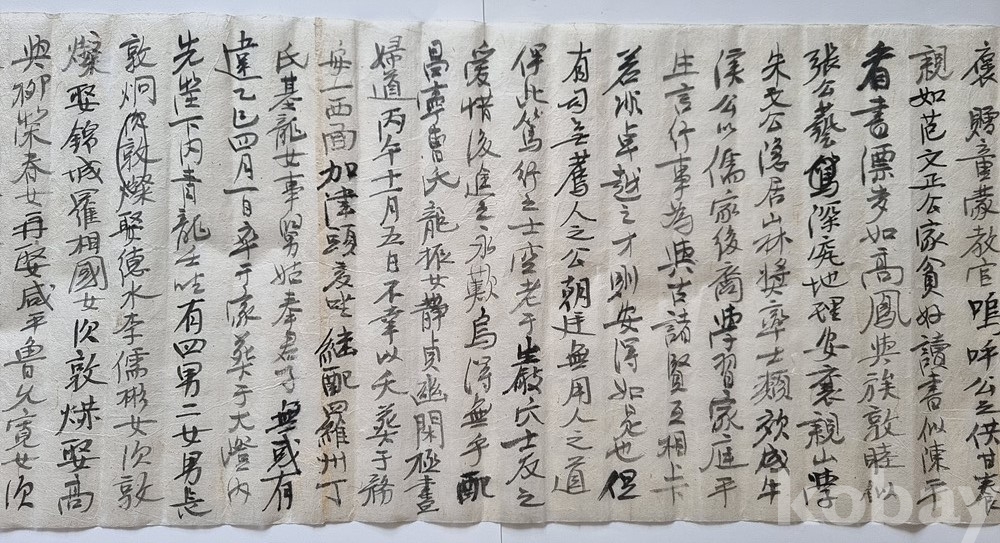 褒贈童蒙教官嗚呼公之供甘養
親如范文正公家貧好讀書似陳平
看書漂麥如高鳳與族敦睦似
張公藝篤深究地理安襄親山學
朱文公隱居山林獎率士類欬成牛
溪公以儒家後裔學習家庭平
生言行事為與古諸賢互相上下
若非卓越之才則安得如是也但
有司無薦人之公朝廷無用人之道
俾此篤行之士空老于巖穴士友之
愛惜後進之永歎烏得無乎配
昌寧曺氏龍振女靜貞幽閑極盡
婦道丙午十一月五日不幸以夭葬于務
安一西面加津頭麦 継配羅州丁
氏基龍女事舅姑奉君子無或有
違乙巳四月一日卒于家葬于大澄內
先塋下內青龍 有四男二女男長
敦炯次敦燦娶德水李儒彬女次敦
燦娶錦城羅相國女次敦烘娶高
興柳榮春女再娶咸平魯允寬女次
kobay